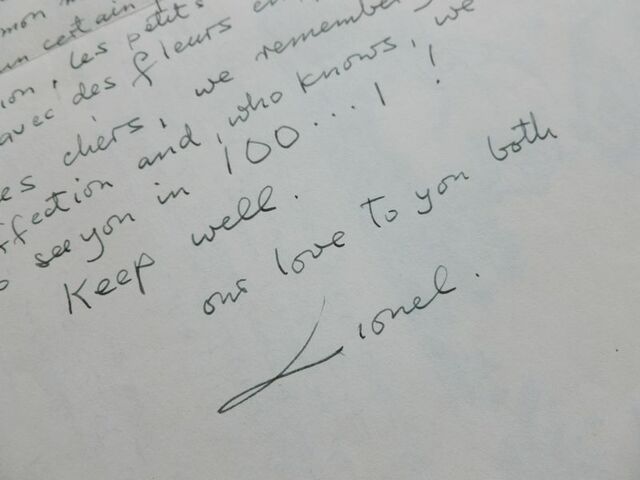 mon
un certain
ion, les petits
avec des fleurs en
es chers, we remember
ffection and, who knows, we
o see you in 100...! !
Keep well.
our love to you both
Lionel.